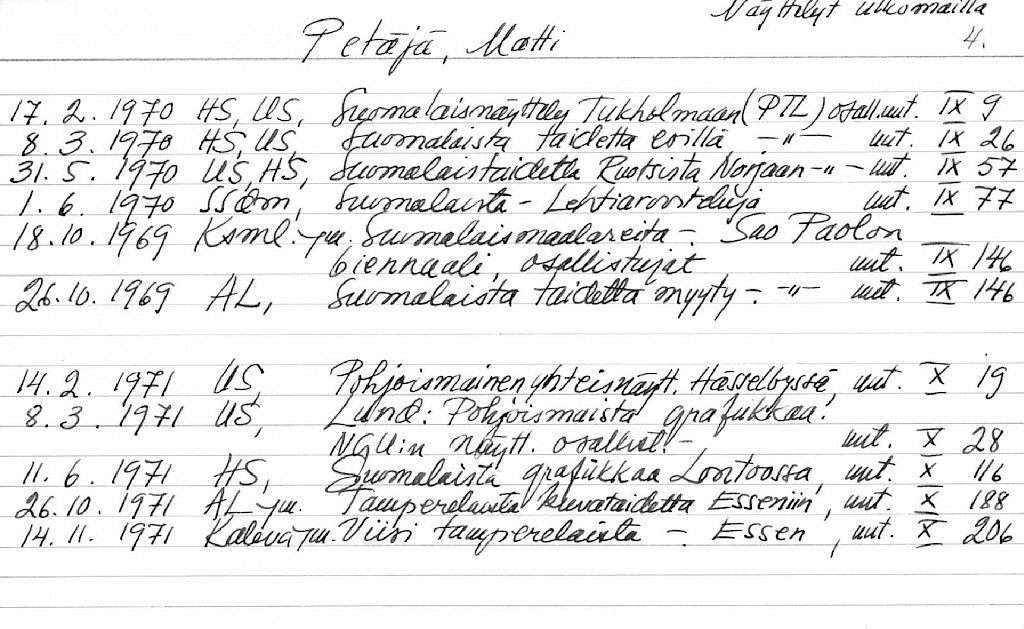 Näyttelyt ulkomailla
4.
Petäjä, Matti
17. 2. 1970 HS, US, Suomalaisnäyttely Tukholmaan (PTL) osall. uut. IX 9
8. 3. 1970 HS, US, Suomalaista taidetta esillä -"- uut. IX 26
31. 5. 1970 US, HS, Suomalaistaidetta Ruotsista Norjaan -"- uut. IX 57
1. 6. 1970 SSdm, Suomalaista - Lehtiarvosteluja uut. IX 77
18. 10. 1969 Ksml. ym. Suomalaismaalareita - Sao Paolon
biennaali, osallistujat uut. IX 146
26. 10. 1969 AL, Suomalaista taidetta myyty - -"- uut. IX 146
14. 2. 1971 US, Pohjoismainen yhteisnäytt. Hässelbyssä, uut. X 19
8. 3. 1971 US, Lund: Pohjoismaista grafiikkaa.
NGU:n näytt. osallist. - uut. X 28
11. 6. 1971 HS, Suomalaista grafiikkaa Lontoossa, uut. X 116
26. 10. 1971 AL ym. Tamperelaista kuvataidetta Esseniin, uut. X 188
14. 11. 1971 Kaleva ym. Viisi tamperelaista - Essen, uut. X 206